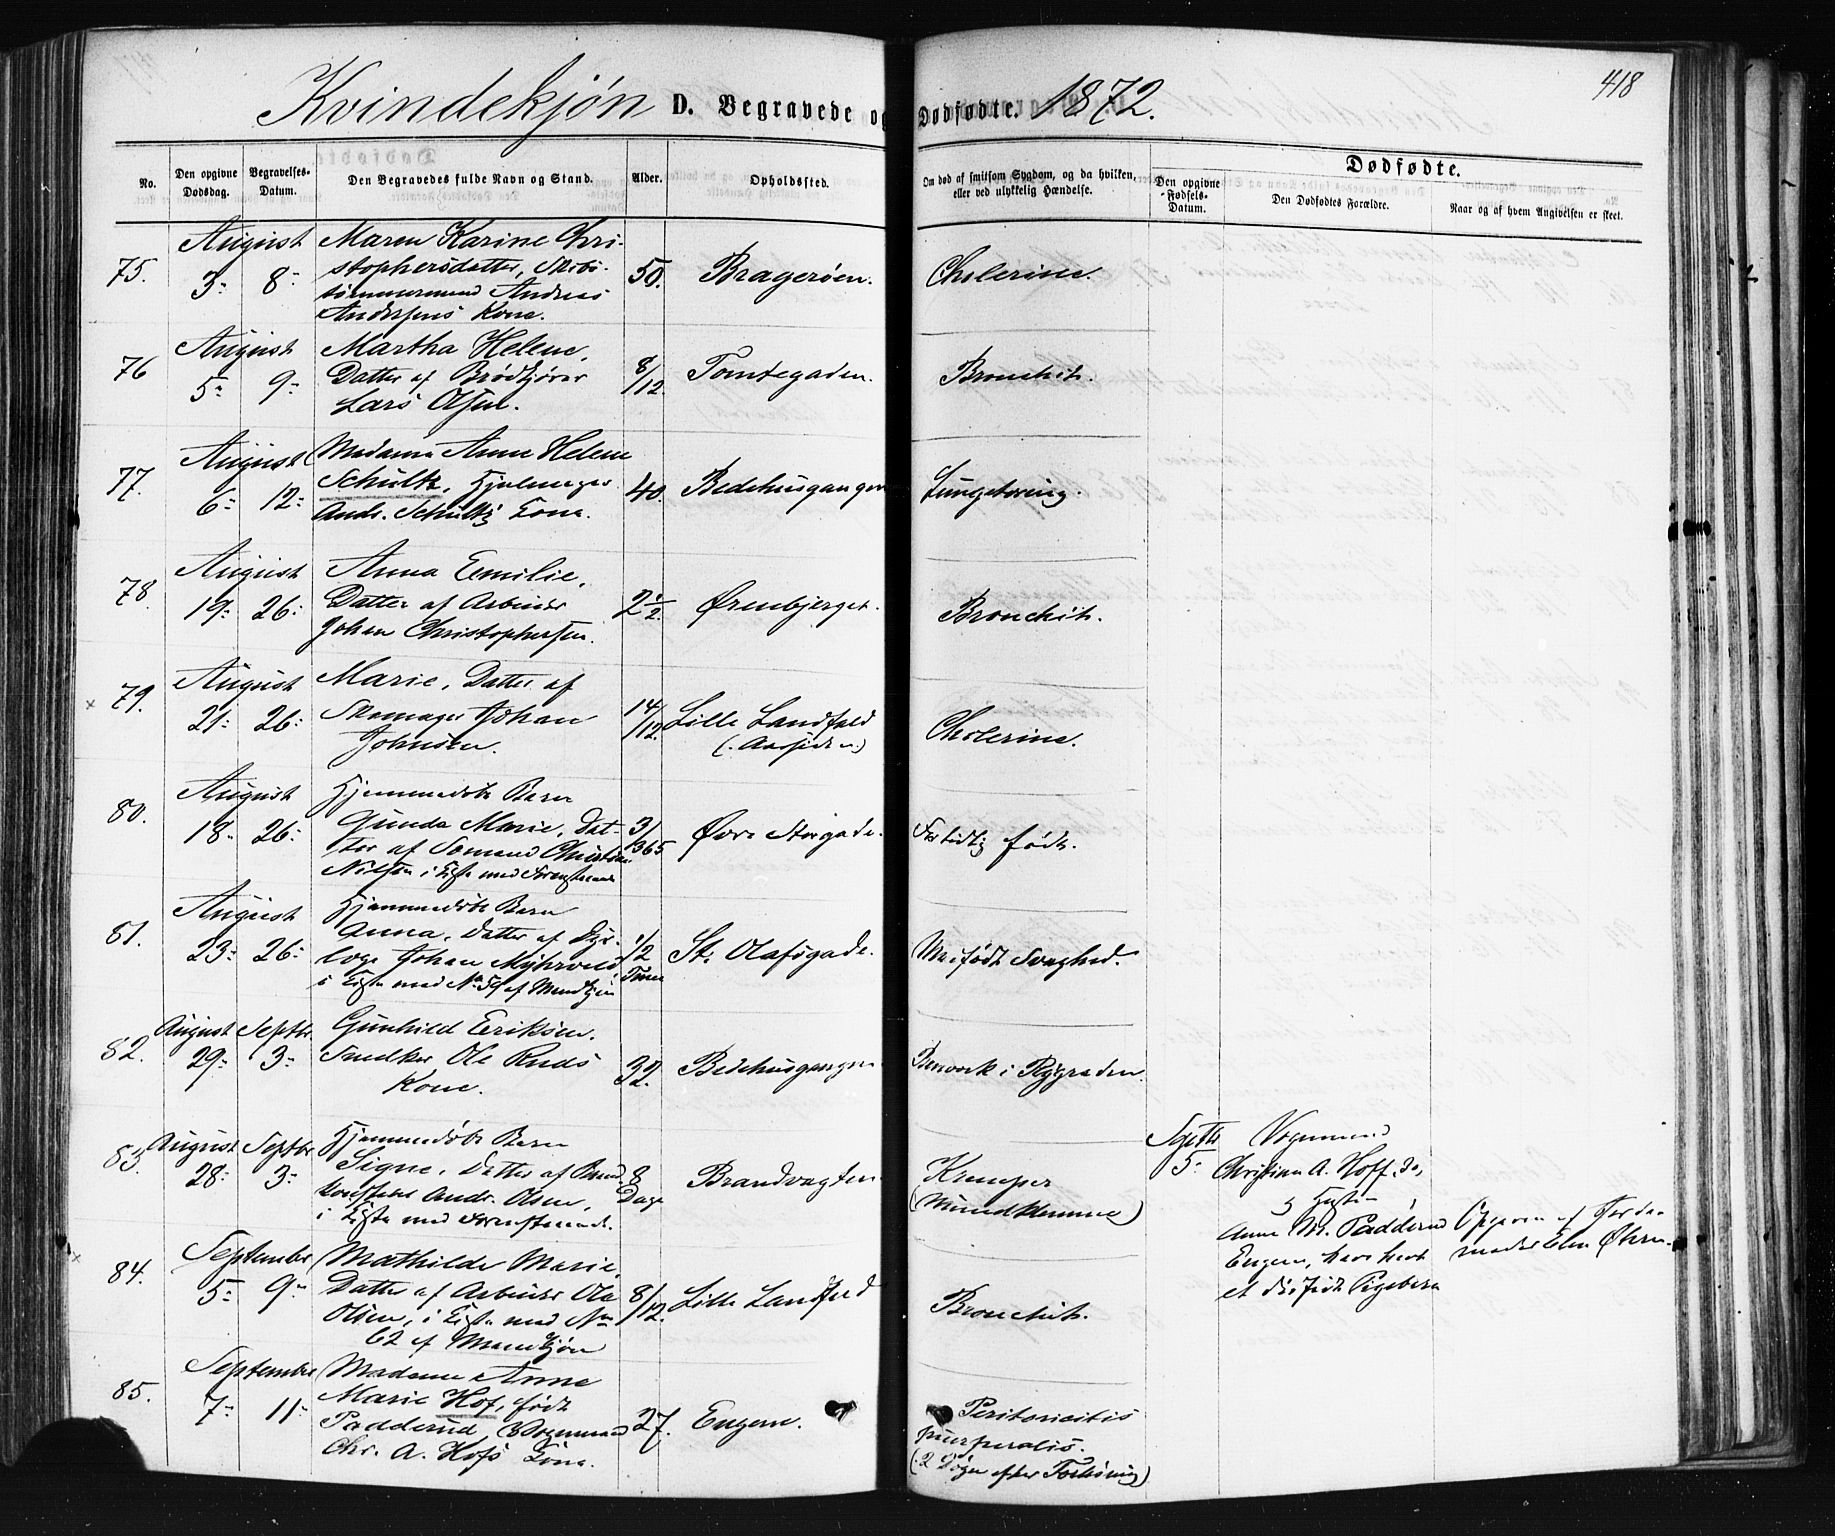 Kvindekjøn D. Begravede og Dødfødte. 1872.
418
No.
Den opgivne Dødsdag.
Begravelses-Datum.
Den Begravedes fulde Navn og Stand.
Alder.
Opholdssted.
Om død af smitsom Sygdom, og da hvilken,
eller ved ulykkelig Hændelse.
Dødfødte.
Den opgivne Fødsels-Datum.
Den Dødfødtes Forældre.
Naar og af hvem Angivelsen er skeet.
75. August 3- 8-
Maren Karine Chri-
stophersdatter, Skibs-
tømmermand Andreas
Andersens Kone.
50. Bragerøen. Cholerine.
76 August 5- 9-
Martha Helene,
Datter af Brødkjører
Lars Olsen.
8/12. Tomtegaden. Bronchit.
77. August 6- 12-
Madame Anne Helene
Schultz, Hjulmager
Andr. Schultz' Kone.
40. Bedehusgangen Lungetæring.
78. August 19- 26-
Anna Emilie,
Datter af Arbeider
Johan Christophersen.
2 1/2. Ørenbjerget. Bronchit.
79. August 21- 26-
Marie, Datter af
Skomager Johan
Johnsen.
14/12. Lille Landfald
Cholerine.
80. August 18- 26-
Hjemmedøbt Barn
Gunda Marie, Dat-
ter af Sømand Christian
Nilsen i Kiste med Forenstaaende
3/365 Øvre Storgade. For tidlig født.
81. August 23- 26-
Hjemmedøbt Barn
Anna, Datter af
Johan Myhrvold
i Kiste med No 59 af Mandkjøn
1/2 Time St. Olafsgade. Medfødt Svaghed.
82. August 29- Septbr. 3-
Gunhild Eriksen.
Snedker Ole Ruds
Kone.
32. Bedehusgangen Benværk i Rygraden.
83. August 28- Septbr 3-
Hjemmedøbt Barn
Signe, Datter af Brand-
konstabel Andr. Olsen,
i Kiste med Forenstaaende.
8 Dage Brandvagten Kramper
(Mundklemme)
Septbr 5-
Vognmand
Christian A. Hoff
og Hustru
Anne M. Padderud
Engene, have havt
et dødfødt Pigebarn
Opgiven af Jorde-
moder Elen Øhrn.
84. September 5- 9-
Mathilde Marie,
Datter af Arbeider Ole
Olsen, i Kiste med No
62 af Mandkjøn
8/12. Lille Landfald Bronchit.
85. September 7- 11-
Madame Anne
Marie Hof, født
Padderud, Vognmand
Chr. A. Hofs Kone.
27. Engene. Peritonitis
puerperalis.
(2 Døgn efter Forløsning)